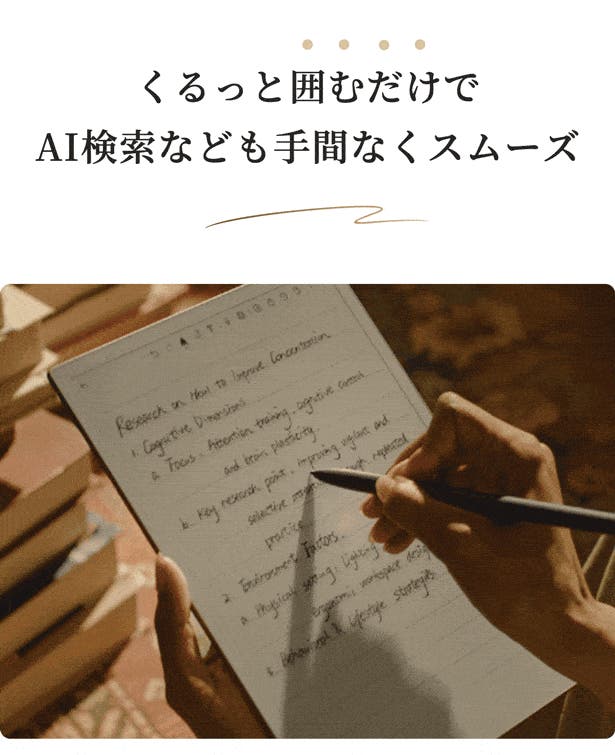 くるっと囲むだけで
AI検索なども手間なくスムーズ
Research on How to Improve Concentration
1. Cognitive Dimensions
a. Focus, Attention training, cognitive control
and brain plasticity.
b. Key research point, improving vigilant and
selective through repeated
practice
2. Environment Factors.
a. Physical setting: lighting
workspace design
Behavioral & lifestyle strategies